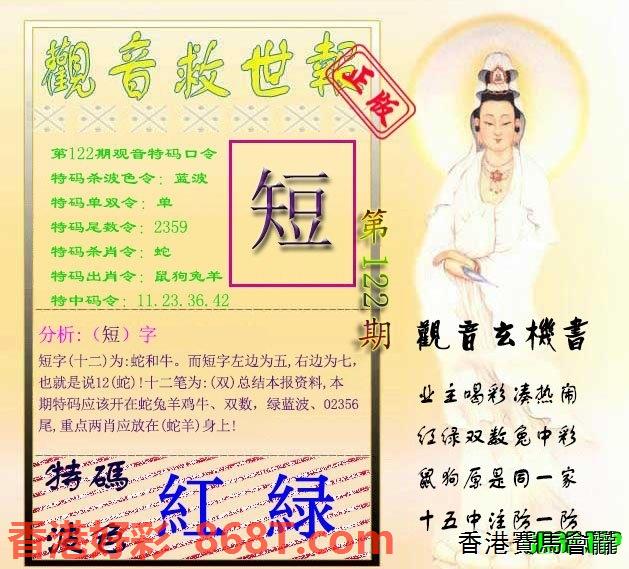 觀音救世報
正版
第122期观音特码口令
特码杀波色令：蓝波
特码单双令：单
特码尾数令：2359
特码杀肖令：蛇
特码出肖令：鼠狗兔羊
特中码令：11.23.36.42
短
第122期
分析:（短）字
短字(十二)为:蛇和牛。而短字左边为五,右边为七,
也就是说12(蛇)!十二笔为:(双)总结本报资料,本
期特码应该开在蛇兔羊鸡牛、双数，绿蓝波、02356
尾,重点两肖应放在(蛇羊)身上!
特碼
波色
紅 绿
觀音玄機書
业主喝彩凑热闹
红绿双数兔中彩
鼠狗原是同一家
十五中注防一防
香港好彩 868T.com
香港賽馬會